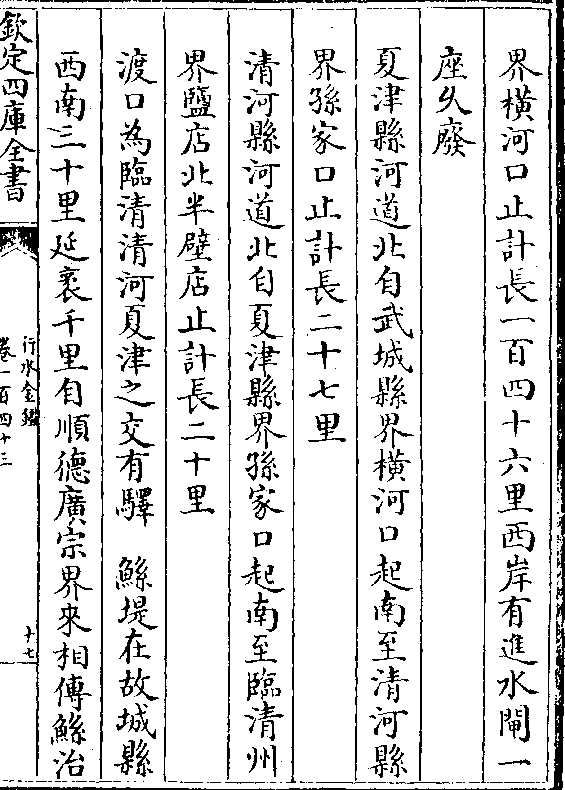 界橫河口止計長一百四十六里西岸有進水閘一
座久廢
夏津縣河道北自武城縣界橫河口起南至清河縣
界孫家口止計長二十七里
清河縣河道北自夏津縣界孫家口起南至臨清州
界鹽店北半壁店止計長二十里
渡口為臨清清河夏津之交有驛　鯀堤在故城縣
西南三十里延袤千里自順德廣宗界來相傳鯀治
欽定四庫全書
行水金鑑
卷一百四十三
十七